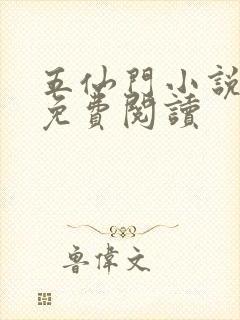 五仙門小說
免費閱讀
魯偉文